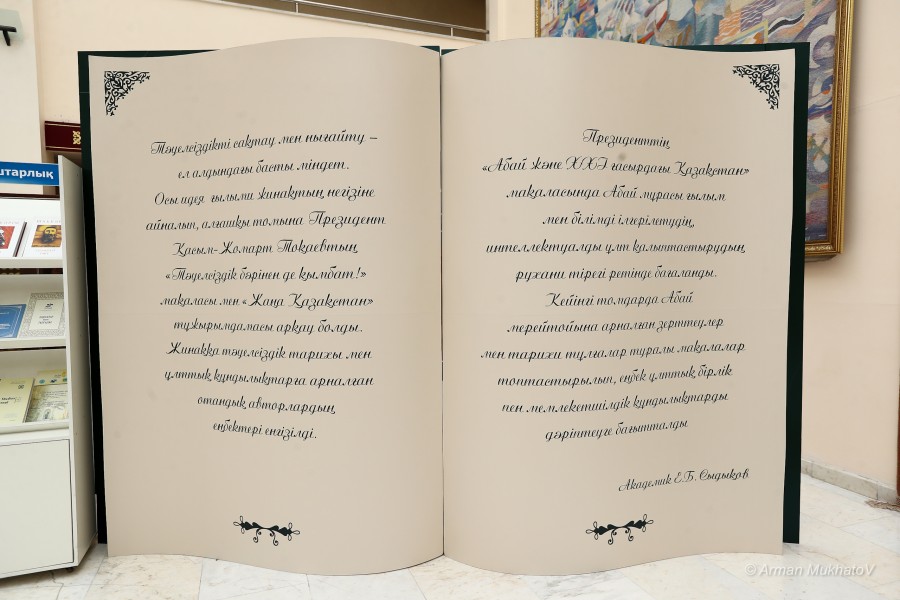 Тәуелсіздікті сақтау мен нығайту –
ел алдындағы басты міндет.
Осы идея ғылыми жинақтың негізіне
айналып, алғашқы томына Президент
Қасым-Жомарт Тоқаевтың
«Тәуелсіздік бәрінен де қымбат!»
мақаласы мен «Жаңа Қазақстан»
тұжырымдамасы арқау болды.
Жинаққа тәуелсіздік тарихы мен
ұлттық құндылықтарға арналған
отандық авторлардың
еңбектері енгізілді.
Президенттің
«Абай және XXI ғасырдағы Қазақстан»
мақаласында Абай мұрасы ғылым
мен білімді ілгерілетудің,
интеллектуалды ұлт қалыптастырудың
рухани тірегі ретінде бағаланды.
Кейінгі томдарда Абай
мерейтойына арналған зерттеулер
мен тарихи тұлғалар туралы мақалалар
топтастырылып, еңбек ұлттық бірлік
пен мемлекетшілдік құндылықтарды
дәріптеуге бағытталды
Академик Е.Б. Сыдықов
штарлық
© Arman MukhatoV